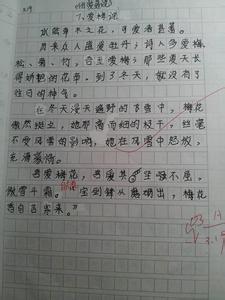 (仿爱莲说)
7.爱梅说
水陆草木之花,可爱者甚蕃。
自来众人追爱牡丹;诗人多爱梅、
松、菊、竹,合立爱梅;那些夏天长
得娇艳的花草,到了冬天,就没有了
往日的神气。
在冬天漫天遍野的飞雪中,梅花
傲然挺立,她那高而细的枝干,丝毫
不受风雪的影响,她在风雪中怒放,
充满豪情。
吾爱梅花,吾爱其坚强不屈,
傲雪斗霜。宝剑锋从磨砺出,梅花
香自苦寒来。”